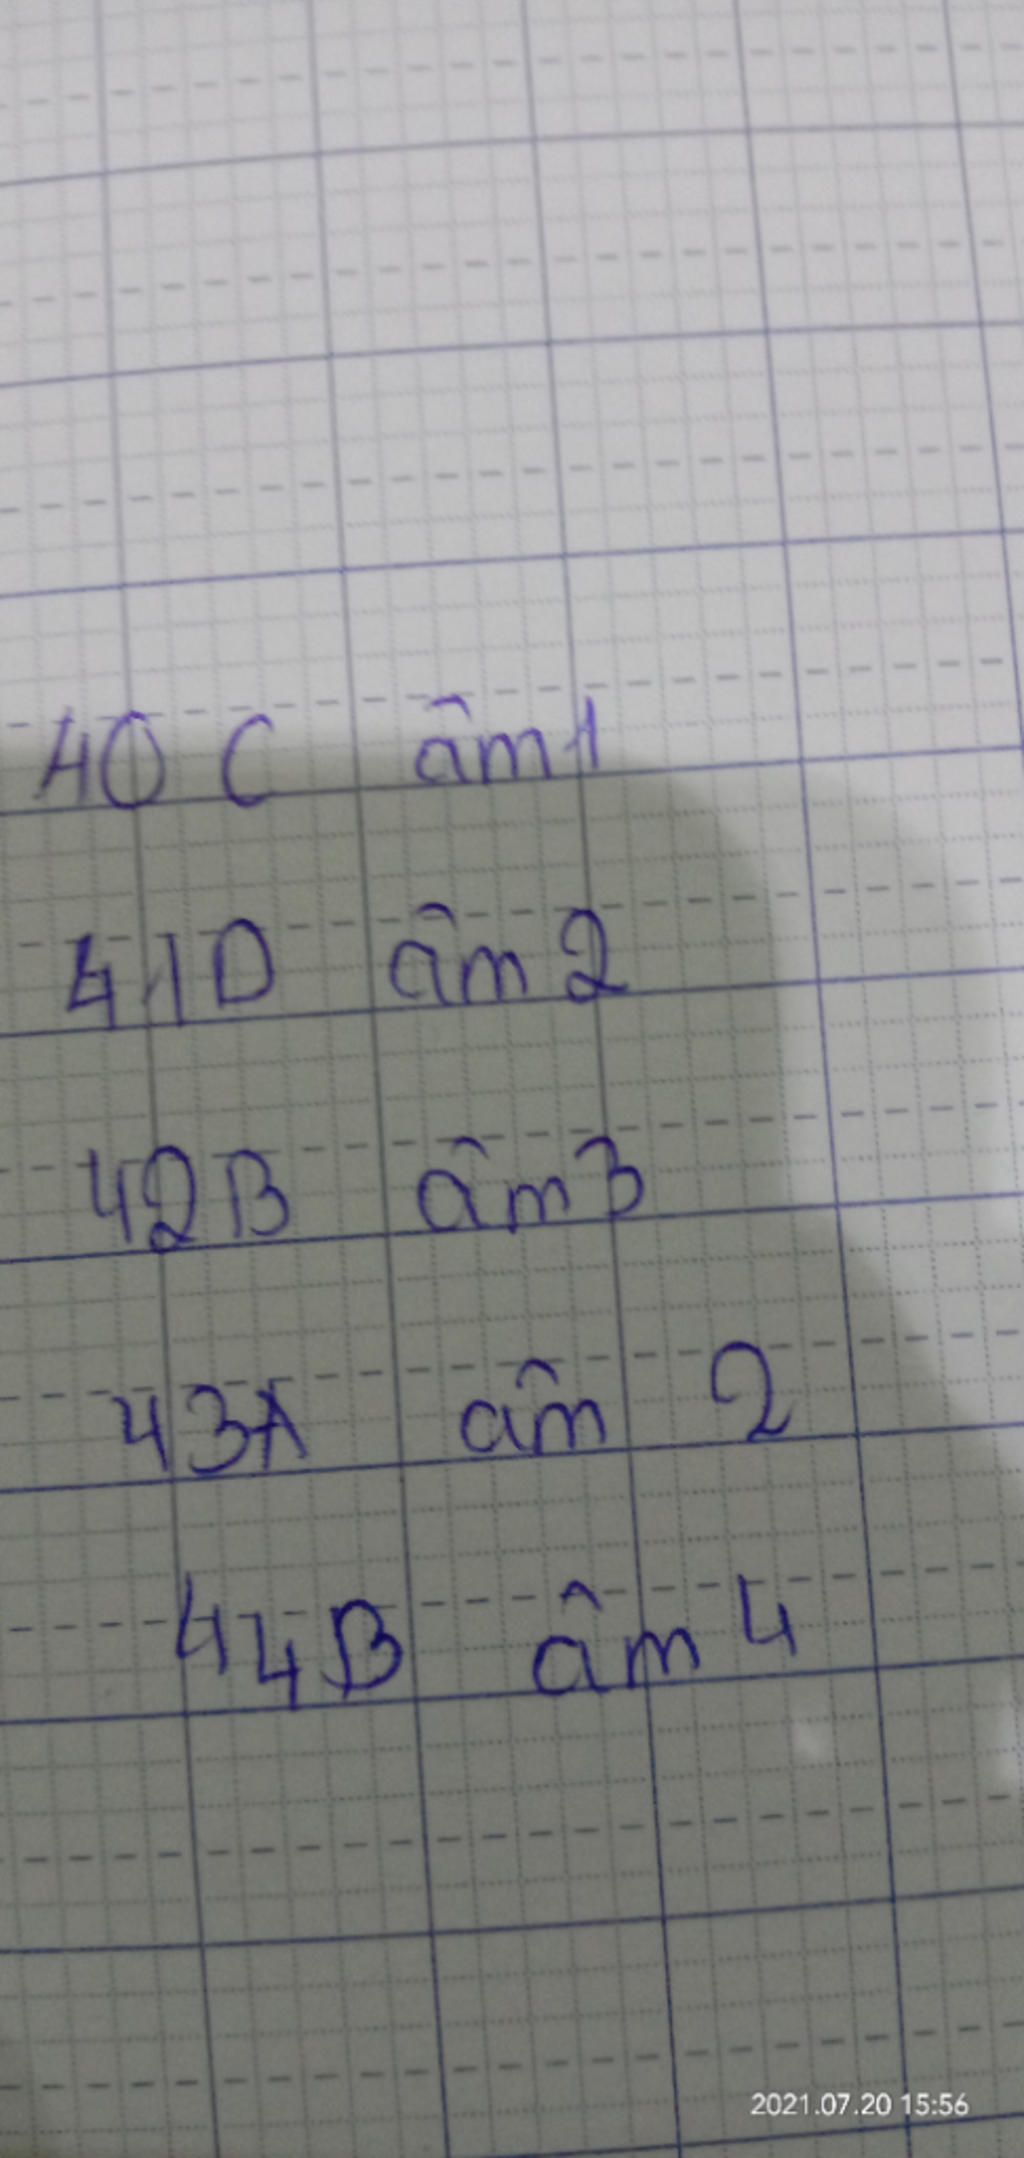 40 C âm 1
41D âm 2
42B âm 3
43A âm 2
44B âm 4
2021.07.20 15:56